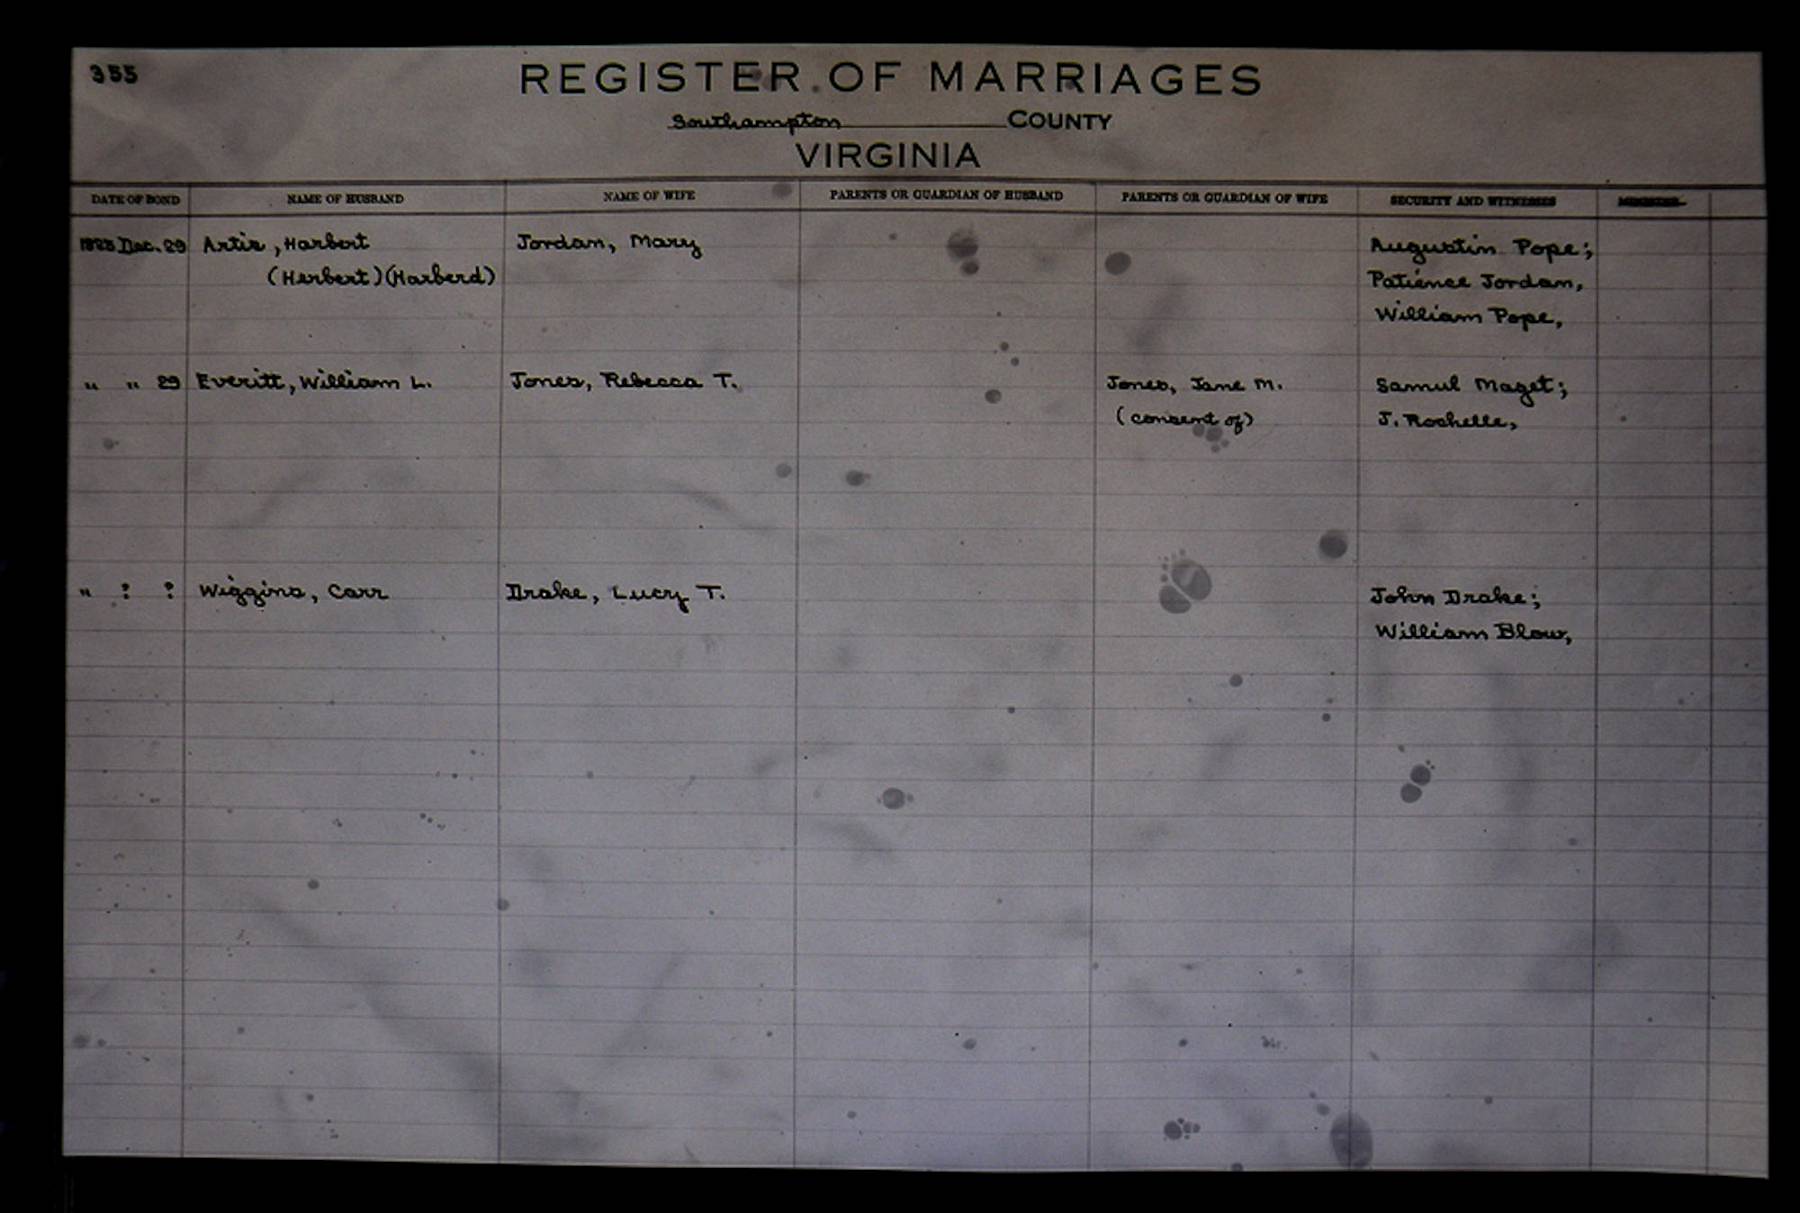 355
REGISTER OF MARRIAGES
Southampton COUNTY
VIRGINIA
DATE OF BOND NAME OF HUSBAND NAME OF WIFE PARENTS OR GUARDIAN OF HUSBAND PARENTS OR GUARDIAN OF WIFE SECURITY AND WITNESSES MINISTER
1823 Dec. 29 Artis, Harbert Jordan, Mary Augustin Pope;
(Herbert)(Harberd) Patience Jordan,
William Pope,
" " 29 Everitt, William L. Jones, Rebecca T. Jones, Jane M. Samul Maget;
(consent of) J. Rochelle,
" ? ? Wiggins, Carr Drake, Lucy T. John Drake;
William Blow,